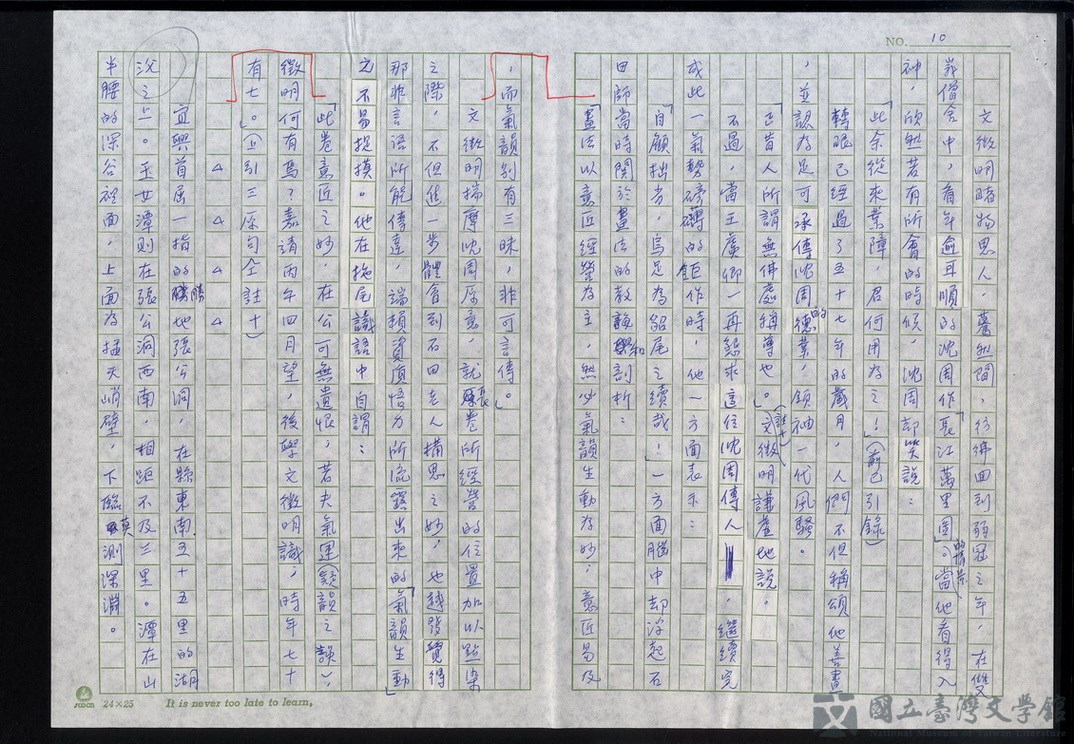 NO. 10
文徵明睹物思人，驀然間，彷彿回到弱冠之年，在雙
峩僧舍中，看年逾耳順的沈周作「長江萬里圖」的情景。當他看得入
神，欣然若有所會的時候，沈周却笑說：
「此余從來業障，君何用為之！」（前已引錄）
轉眼已經過了五十七年的歲月，人們不但稱頌他善畫
，並認為足可承傳沈周的德業，領袖一代風騷。
「正昔人所謂無佛處稱尊也。」（註十）文徵明謙虛地說。
不過，當王虞卿一再懇求這位沈周傳人，繼續完
成此一氣勢磅礡的鉅作時，他一方面表示：
「自顧拙劣，烏足為貂尾之續哉！」一方面腦中却浮起石
田師當時關於畫法的教誨和剖析：
「畫法以意匠經營為主，然必氣韻生動為妙；意匠易及
，而氣韻別有三昧，非可言傳。」
文徵明揣摩沈周原意，就長卷所經營的位置加以點染
之際，不但進一步體會到石田老人構思之妙，也越發覺得
那非言語所能傳達，端賴資質悟力所流露出來的「氣韻生動」
之不易捉摸。他在拖尾識語中自謂：
「此卷意匠之妙，在公可無遺恨，若夫氣運（疑韻之誤），
徵明何有焉？嘉靖丙午四月望，後學文徵明識，時年七十
有七。」（上引三原句仝註十）
△ △ △ △
宜興首屈一指的勝地張公洞，在縣東南五十五里的湖
㳇之上。玉女潭則在張公洞西南，相距不及三里。潭在山
半腰的深谷裡面，上面為插天峭壁，下臨莫測深淵。
24×25
It is never too late to learn.
國立臺灣文學館
National Museum of Taiwan Literature